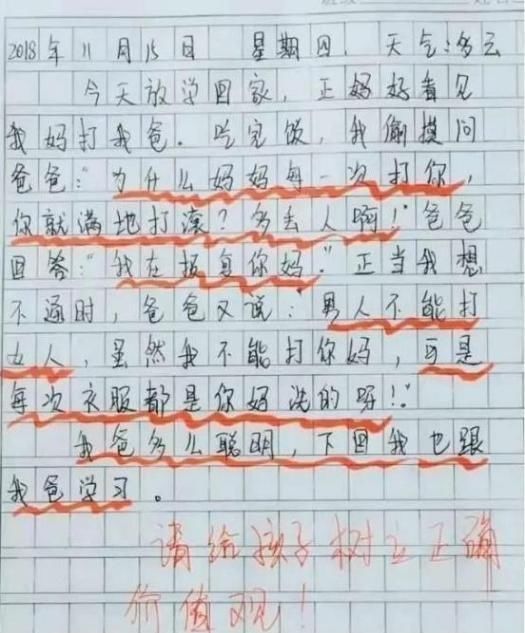 2018年11月15日 星期四. 天气:多云
今天放学回家,正妈好看见
我妈打我爸.吃完饭,我偷摸问
爸爸:"为什么妈妈每一次打你,
你就满地打滚?多丢人啊!"爸爸
回答:"我在报复你妈."正当我想
不通时,爸爸又说:"男人不能打
女人,虽然我不能打你妈,可是
每次衣服都是你妈洗的呀!"
我爸多么聪明,下回我也跟
我爸学习。
请给孩子树立正确
价值观!